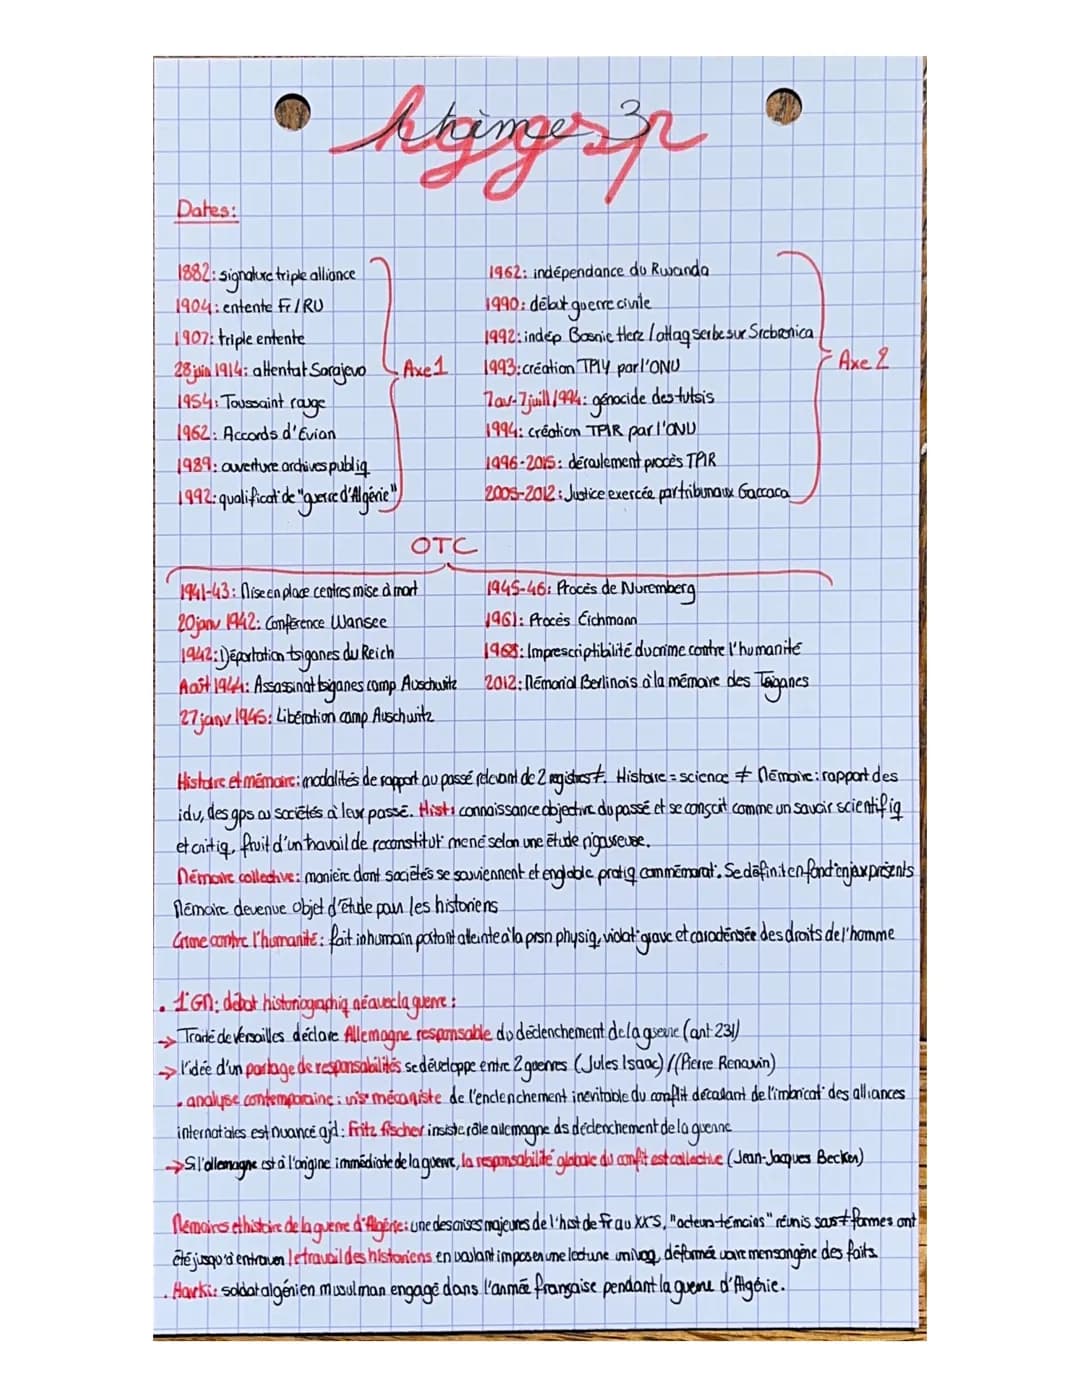 hggsp
thème 3
Dates:
1882: signature triple alliance
1904: entente Fr/RU
1907: triple entente
28 juin 1914: attentat Sarajevo
1954: Toussaint rouge
1962: Accords d'Evian
1989: ouverture archives publiq
1992: qualificat° de "guerre d'Algérie"
Axe 1
1962: indépendance du Rwanda
1990: début guerre civile
1992: indép Bosnie Herz / attaq serbe sur Srebrenica
1993: création TPIY par l'ONU
7 av-7 juill 1994: génocide des tutsis
1994: création TPIR par l'ONU
1996-2015: déroulement procès TPIR
2005-2012: Justice exercée par tribunaux Gaccaca
Axe 2
OTC
1941-43: Mise en place centres mise à mort
20 janv 1942: Conférence Wansee
1942: Déportation tsiganes du Reich
Août 1944: Assassinat tsiganes camp Auschwitz
27 janv 1945: Libération camp Auschwitz
1945-46: Procès de Nuremberg
1961: Procès Eichmann
1968: Imprescriptibilité du crime contre l'humanité
2012: Mémorial Berlinois à la mémoire des Tsiganes
Histoire et mémoire: modalités de rapport au passé relevant de 2 registres ≠. Histoire = science ≠ Mémoire: rapport des
idv, des gps ou sociétés à leur passé. Hist: connaissance objective du passé et se conçoit comme un savoir scientifiq
et critiq, fruit d'un travail de reconstitut° mené selon une étude rigoureuse.
Mémoire collective: manière dont sociétés se souviennent et englobe pratiq commémorat°. Se définit en fonct° enjeux présents
Mémoire devenue objet d'étude pour les historiens
Crime contre l'humanité: fait inhumain portant atteinte à la prsn physiq, violat° grave et caractérisée des droits de l'homme
. 1°GM: débat historiographiq né avec la guerre:
→ Traité de Versailles déclare Allemagne responsable du déclenchement de la guerre (art 231)
→ l'idée d'un partage de responsabilités se développe entre 2 guerres (Jules Isaac) // (Pierre Renouvin)
. analyse contemporaine: vis° mécaniste de l'enclenchement inévitable du conflit découlant de l'imbricat° des alliances
internat°ales est nuancé ajd: Fritz fischer insiste rôle allemagne ds déclenchement de la guerre
→ Si l'allemagne est à l'origine immédiate de la guerre, la responsabilité globale du conflit est collective (Jean-Jacques Becker)
Mémoires et histoire de la guerre d'Algérie: une des crises majeures de l'hist de Fr au XXs, "acteurs-témoins" réunis sous ≠ formes ont
été jusqu'à entraver le travail des historiens en voulant imposer une lecture univoq, déformée voire mensongère des faits.
. Harki: soldat algérien musulman engagé dans l'armée française pendant la guerre d'Algérie.